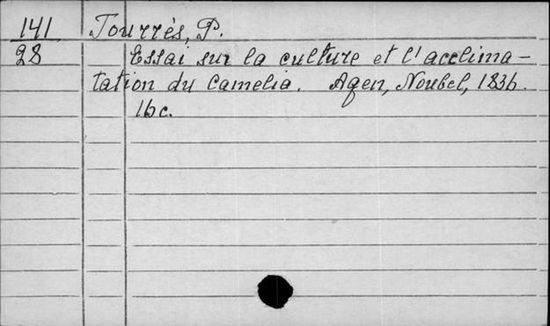 141 Tourrès, P.
28 Essai sur la culture et l'acclima-
tation du Camelia. Agen, Noubel, 1836.
16c.